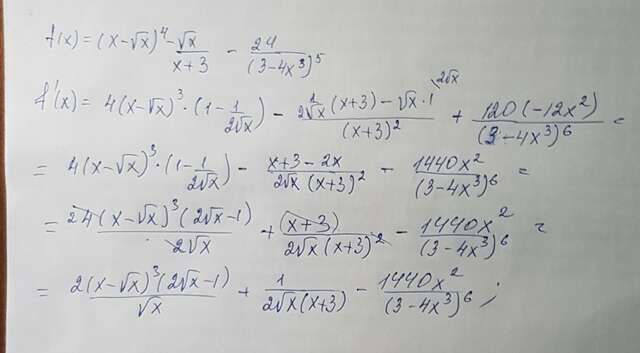 f(x) = (x-√x)⁴ - √x/(x+3) - 24/(3-4x³)⁵
f'(x) = 4(x-√x)³ · (1 - 1/(2√x)) - (1/(2√x) (x+3) - √x·1)/(x+3)² \2√x + 120(-12x²)/(3-4x³)⁶ =
= 4(x-√x)³ · (1 - 1/(2√x)) - (x+3-2x)/(2√x (x+3)²) - 1440x²/(3-4x³)⁶ =
= 2 4(x-√x)³(2√x-1)/(2√x) + (x+3)/(2√x (x+3)²) - 1440x²/(3-4x³)⁶ =
= 2(x-√x)³(2√x-1)/√x + 1/(2√x(x+3)) - 1440x²/(3-4x³)⁶ ;